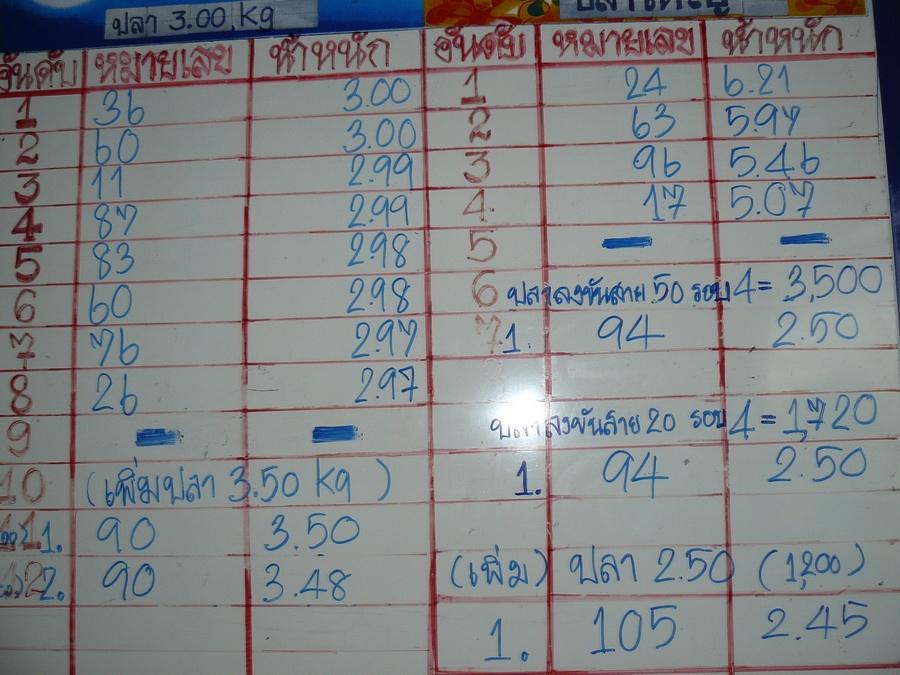 ปลา 3.00 Kg
อันดับ หมายเลข น้ำหนัก
1 36 3.00
2 60 3.00
3 11 2.99
4 87 2.99
5 83 2.98
6 60 2.98
7 76 2.97
8 26 2.97
9 - -
10 (เพิ่มปลา 3.50 Kg)
11 1. 90 3.50
12 2. 90 3.48
อันดับ หมายเลข น้ำหนัก
1 24 6.21
2 63 5.97
3 96 5.46
4 17 5.07
5 - -
6 ปลาลงขันสาย 50 รอบ 4 = 3,500
7 1. 94 2.50
ปลาลงขันสาย 20 รอบ 4 = 1,720
1. 94 2.50
(เพิ่ม) ปลา 2.50 (1,200)
1. 105 2.45